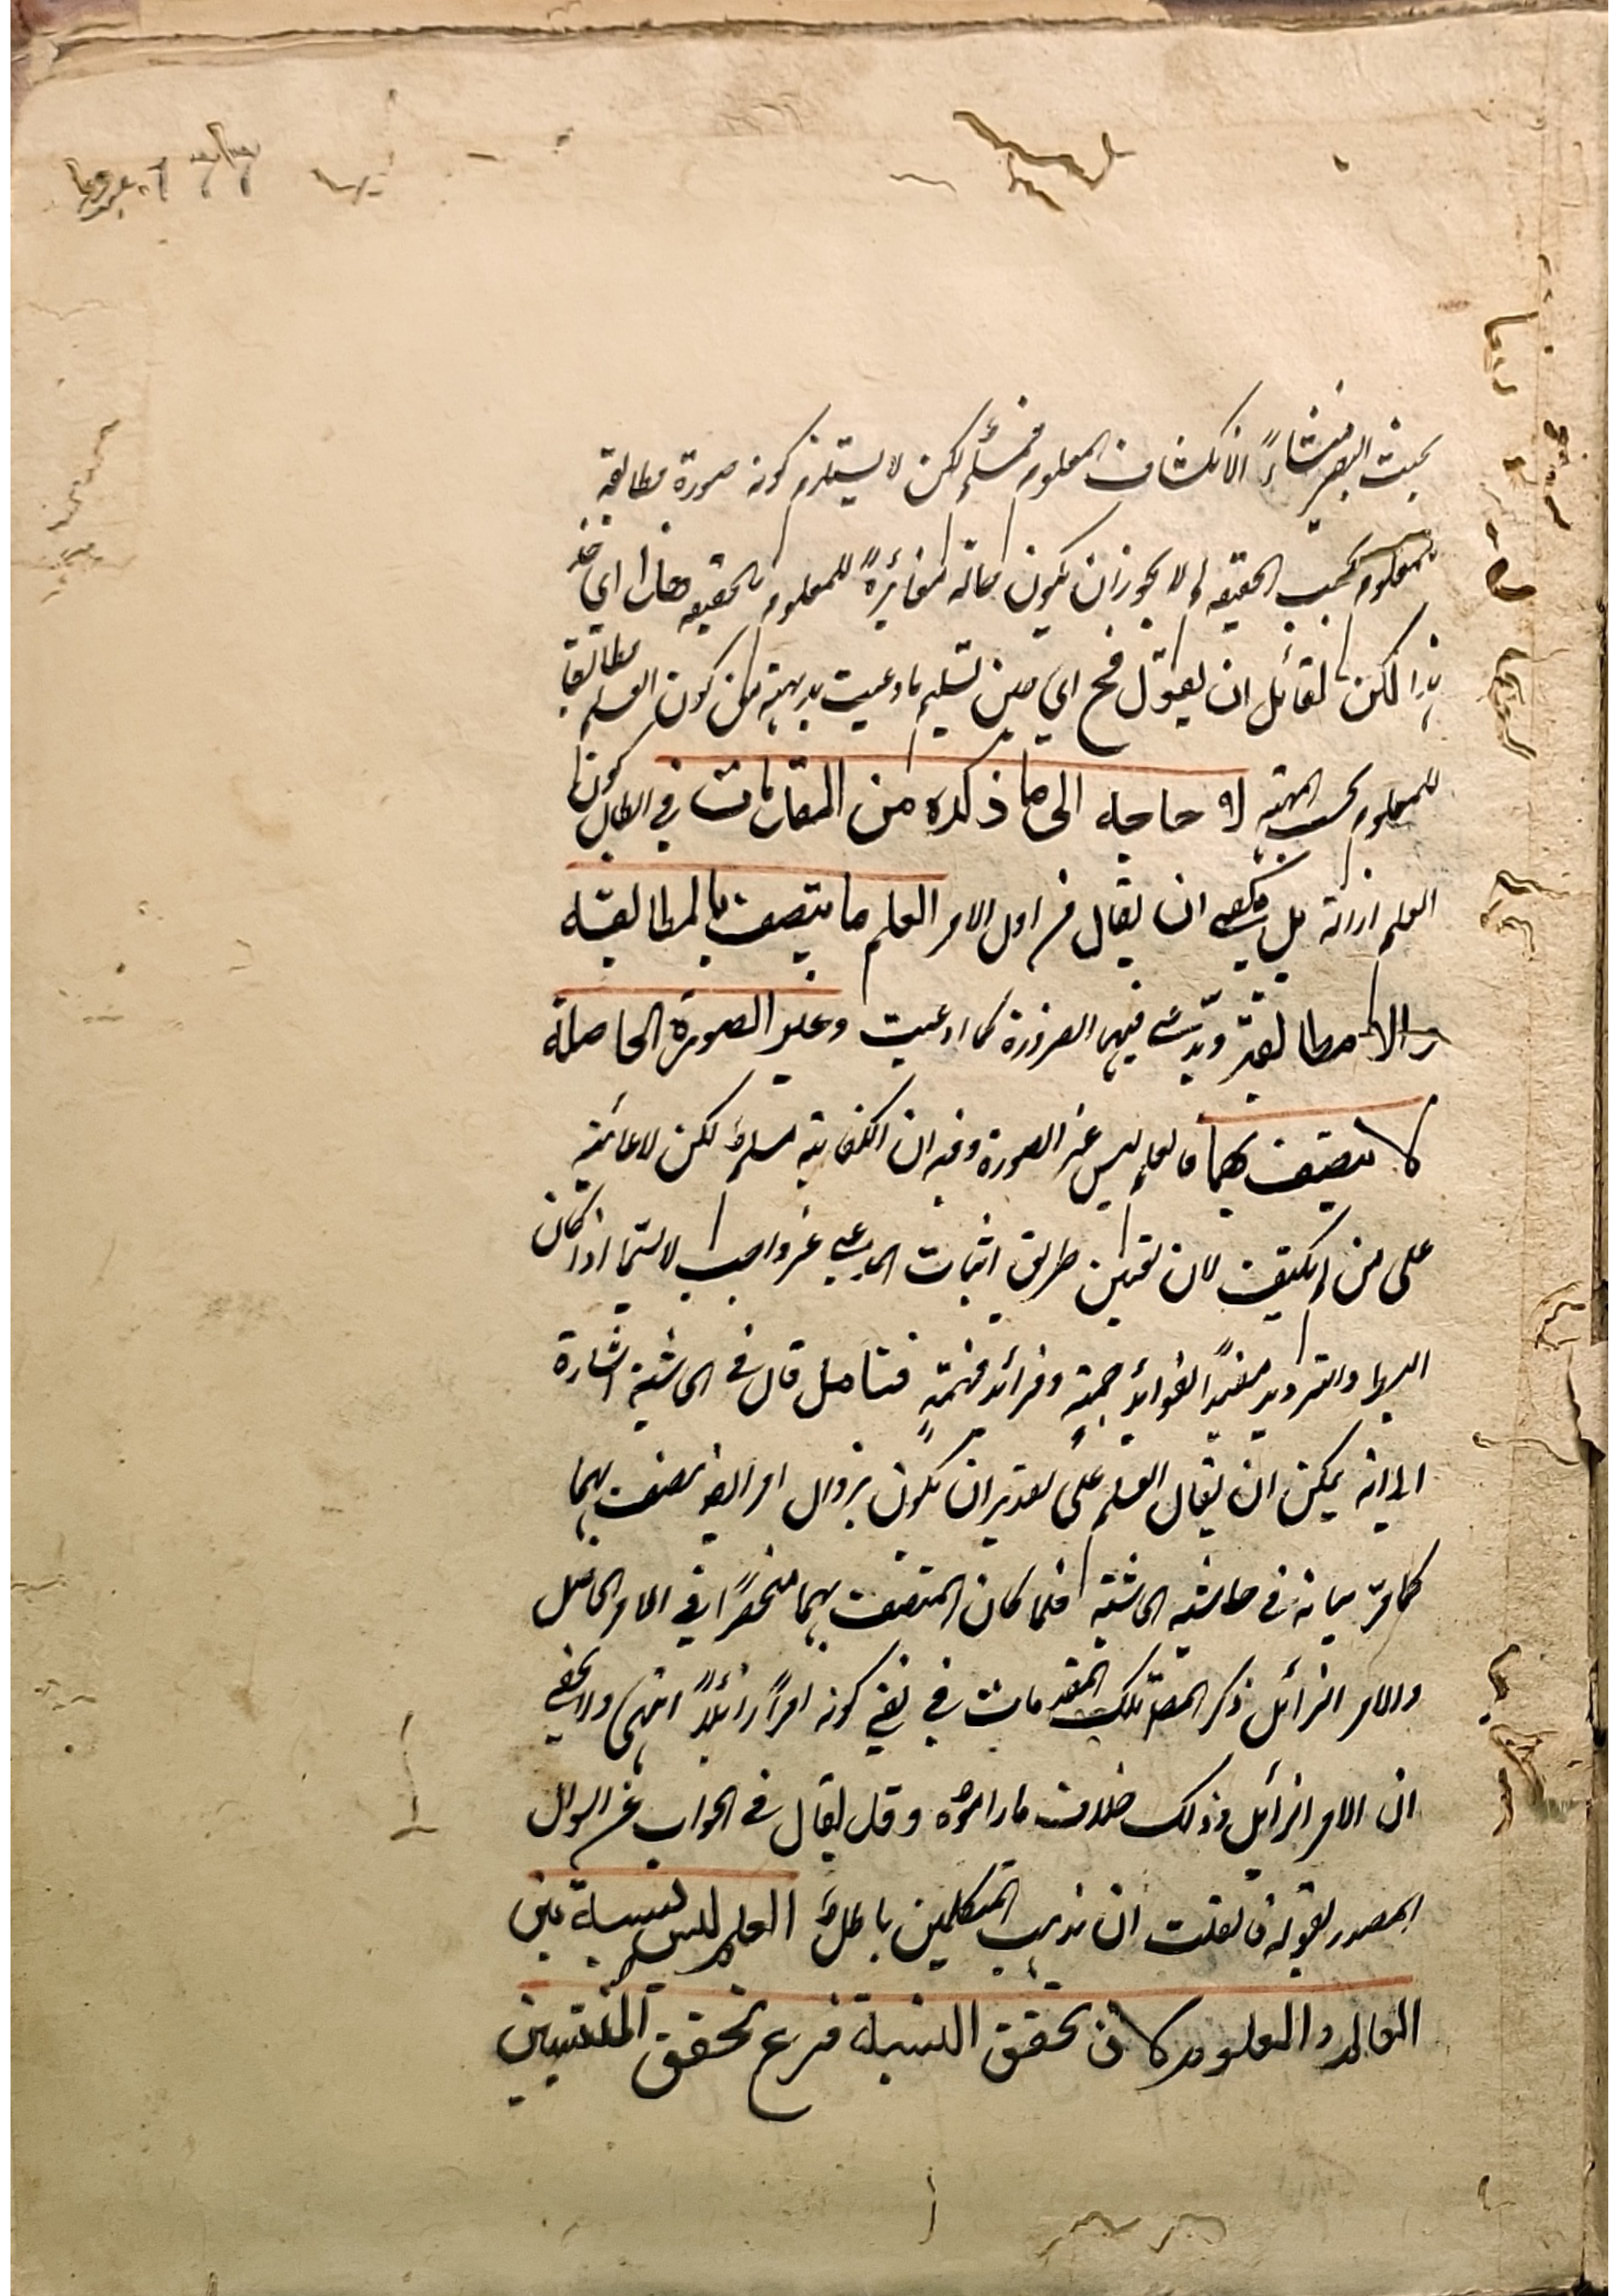 بحيث البصير منشاءً الانكشاف المعلوم فمسلم لكن لا يستلزم كونه صورة مطابقة
للمعلوم بحسب الحقيقة لم لا يجوز ان يكون حالة مغائرةً للمعلوم بالحقيقة هذا اي خذ
هذا لكن لقائل ان يقول فح اي حين تسليم ما دعيت بديهته من كون العلم مطابقا
للمعلوم بحسب المهية لا حاجة الى ما ذكره من المقدمات في ابطال كون
العلم ازالة بل يكفى ان يقال من اول الامر العلم ما يتصف بالمطابقة
والا مطابقة ويدعى فيهما الضرورة كما ادعيت وغير الصورة الحاصلة
لا يتصف بهما فالعلم ليس غير الصورة وفيه ان الكفاية مسلم لكن لا عائبة
على من لم يكتف لان تعيين طريق اثبات المدعى غير واجب لا سيما اذا كان
البها والترديد مفيدًا لفوائد جمةٍ وفرائد مهمةٍ فتامل قال في الحاشية اشارة
الى انه يمكن ان يقال العلم على تقدير ان يكون بزوال امر ايضا يتصف بهما
كما مرّ بيانه في حاشية الحاشية فلما كان المتصف بهما منحصرًا في الامر الحاصل
والامر الزائل ذكر المصـ تلك المقدمات في نفي كونه امرًا زائلًا انتهى ولا يخفى
ان الامر الزائل وذلك خلاف ما راموه وقد يقال في الجواب عن السوال
المصدر بقوله فان قلت ان مذهب المتكلمين باطل العلم ليس نسبة بين
العالم والمعلوم لان تحقق النسبة فرع تحقق المنتسبين